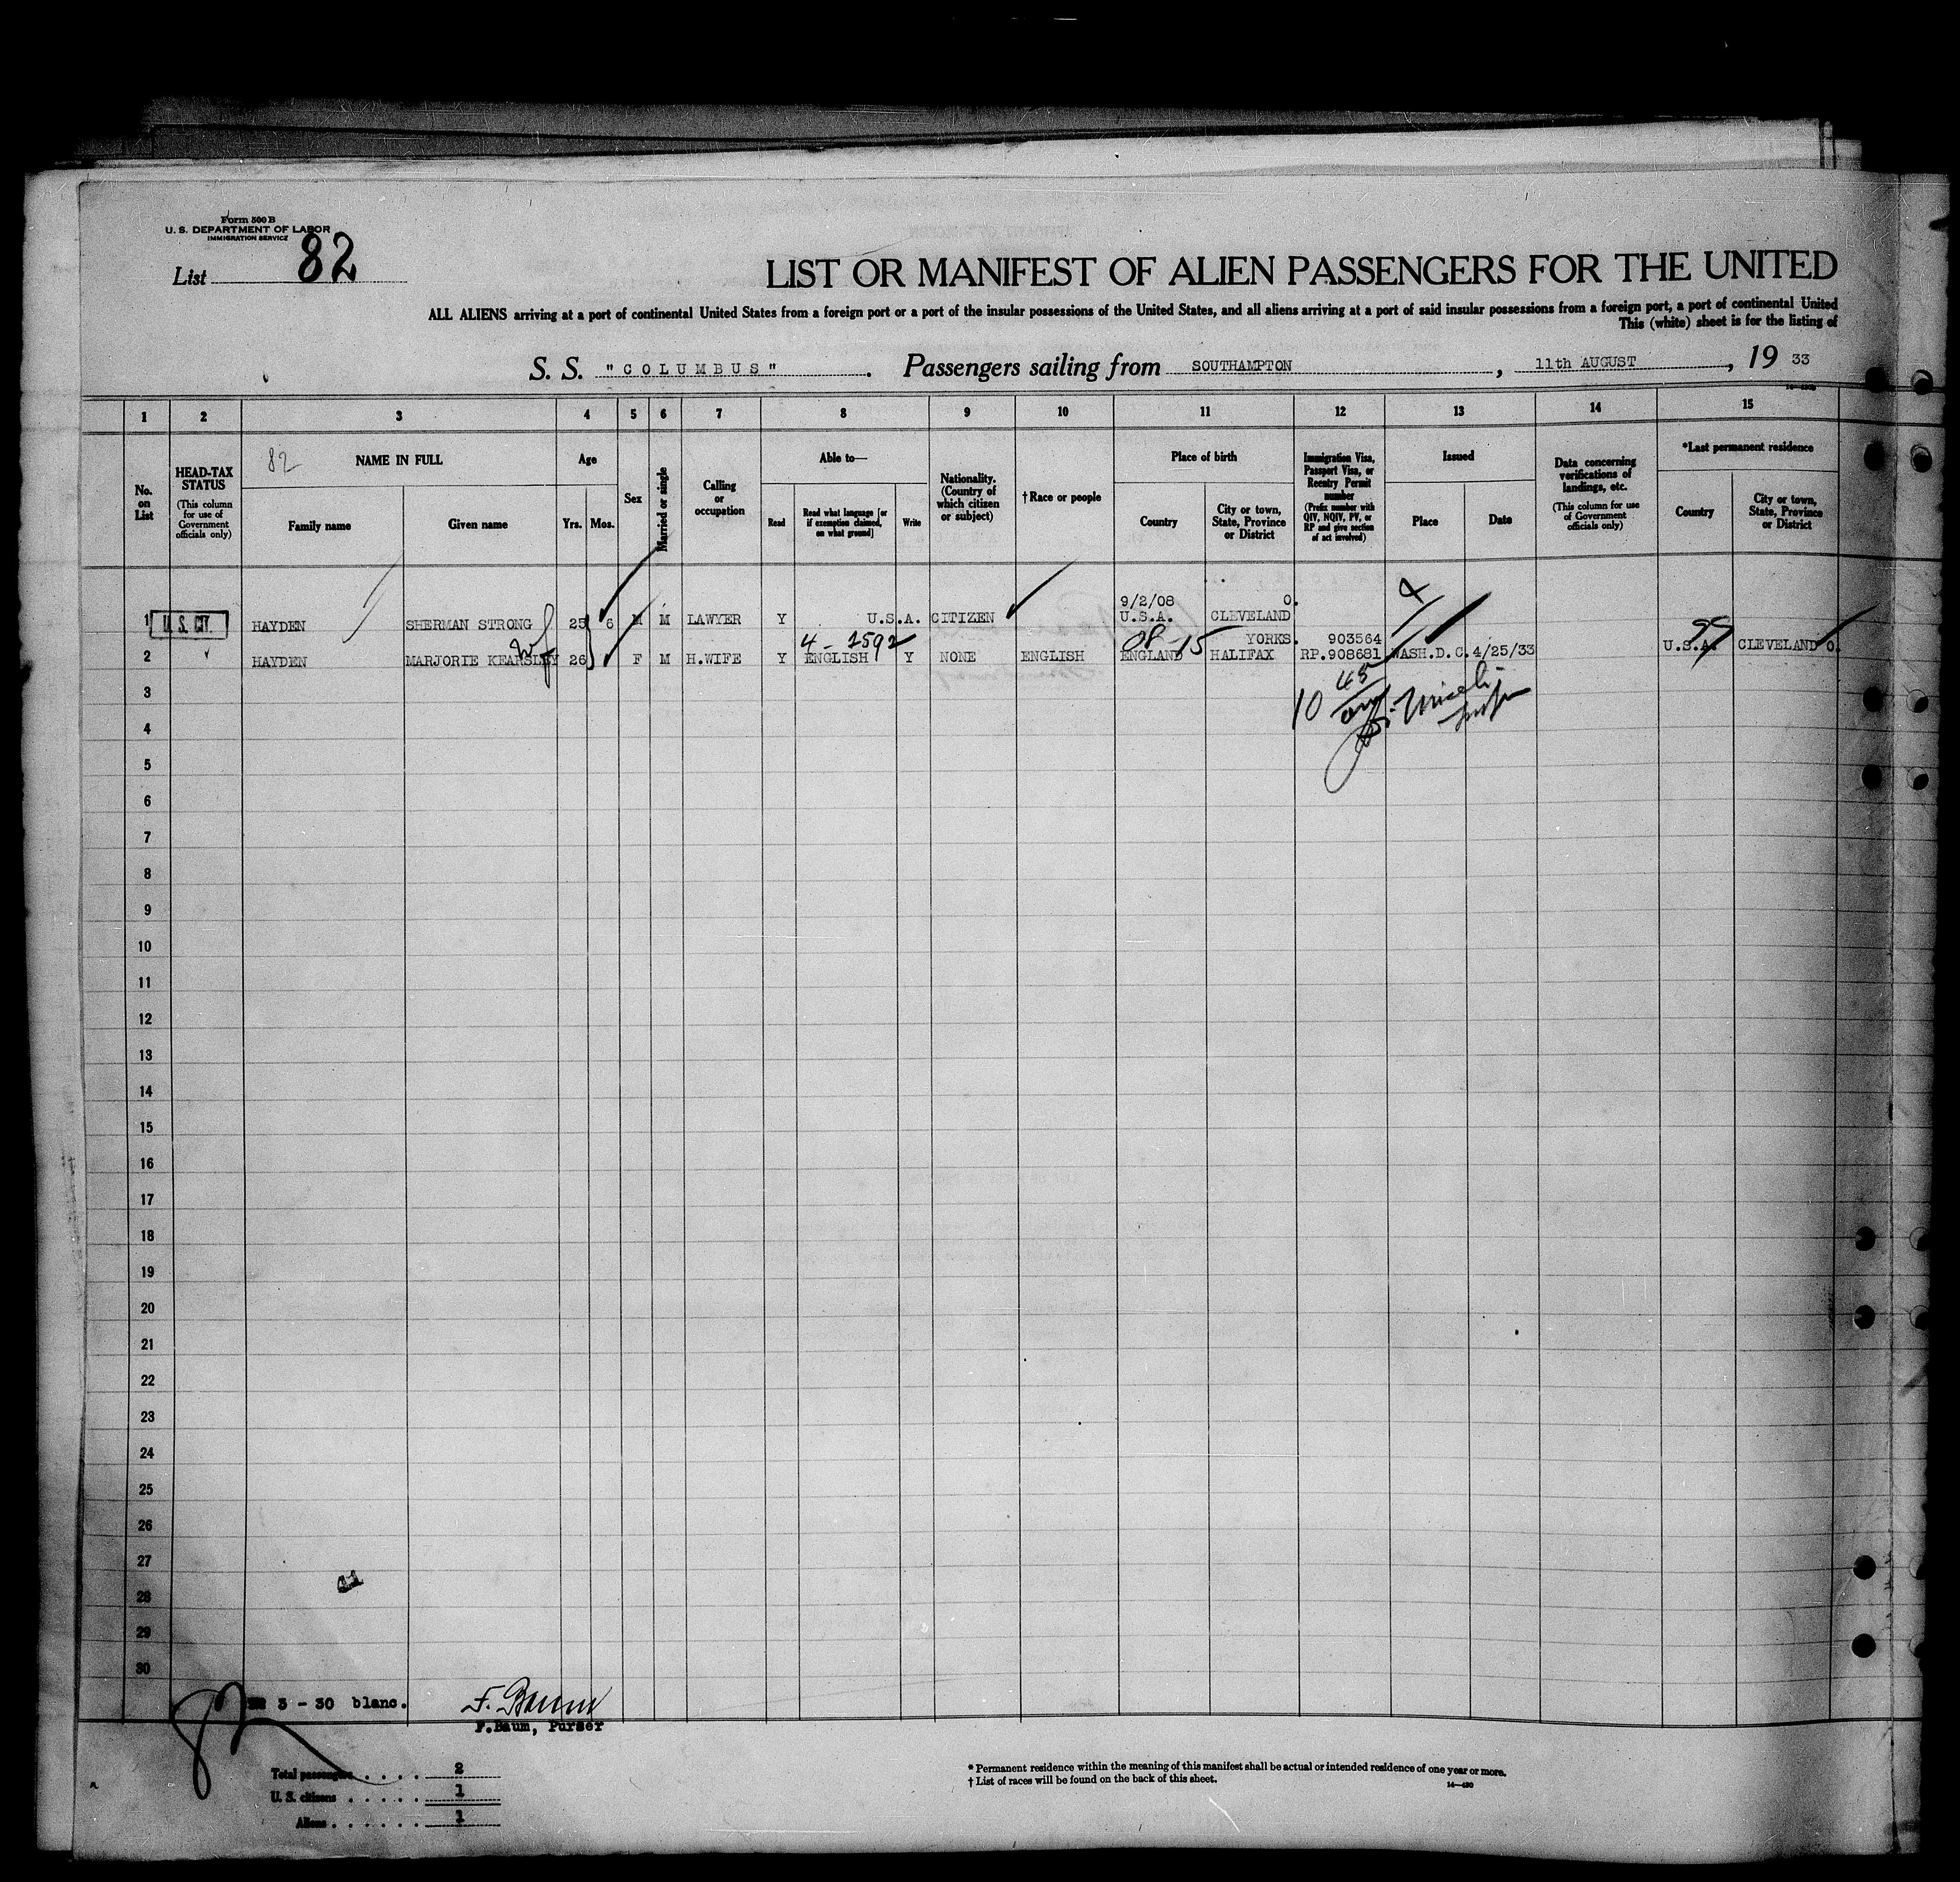 Form 500 B
U. S. DEPARTMENT OF LABOR
IMMIGRATION SERVICE
List 82
LIST OR MANIFEST OF ALIEN PASSENGERS FOR THE UNITED
ALL ALIENS arriving at a port of continental United States from a foreign port or a port of the insular possessions of the United States, and all aliens arriving at a port of said insular possessions from a foreign port, a port of continental United
This (white) sheet is for the listing of
S. S. "COLUMBUS". Passengers sailing from SOUTHAMPTON, 11th AUGUST, 19 33
1 2 3 4 5 6 7 8 9 10 11 12 13 14 15
No. on List
HEAD-TAX STATUS
(This column for use of Government officials only)
82 NAME IN FULL
Family name Given name
Age
Yrs. Mos.
Sex
Married or single
Calling or occupation
Able to—
Read
Read what language [or if exemption claimed, on what ground]
Write
Nationality. (Country of which citizen or subject)
†Race or people
Place of birth
Country
City or town, State, Province or District
Immigration Visa, Passport Visa, or Reentry Permit number
(Prefix number with QIV, NQIV, PV, or RP and give section of act involved)
Issued
Place Date
Data concerning verifications of landings, etc.
(This column for use of Government officials only)
*Last permanent residence
Country
City or town, State, Province or District
9/2/08 O.
1 U. S. CIT. HAYDEN SHERMAN STRONG 25 6 M M LAWYER Y U.S.A. CITIZEN U.S.A. CLEVELAND
wf 4-1592 08-15 YORKS. 903564 99
2 HAYDEN MARJORIE KEARSLEY 26 F M H.WIFE Y ENGLISH Y NONE ENGLISH ENGLAND HALIFAX RP.908681 WASH.D.C. 4/25/33 U.S.A. CLEVELAND O.
10 45
3
4
5
6
7
8
9
10
11
12
13
14
15
16
17
18
19
20
21
22
23
24
25
26
27
28
29
30
3 - 30 blanc.
F. Baum
F.Baum, Purser
82
Total passengers . . . . . 2
U. S. citizens . . . . . 1
Aliens . . . . . . 1
* Permanent residence within the meaning of this manifest shall be actual or intended residence of one year or more.
† List of races will be found on the back of this sheet.
14—430